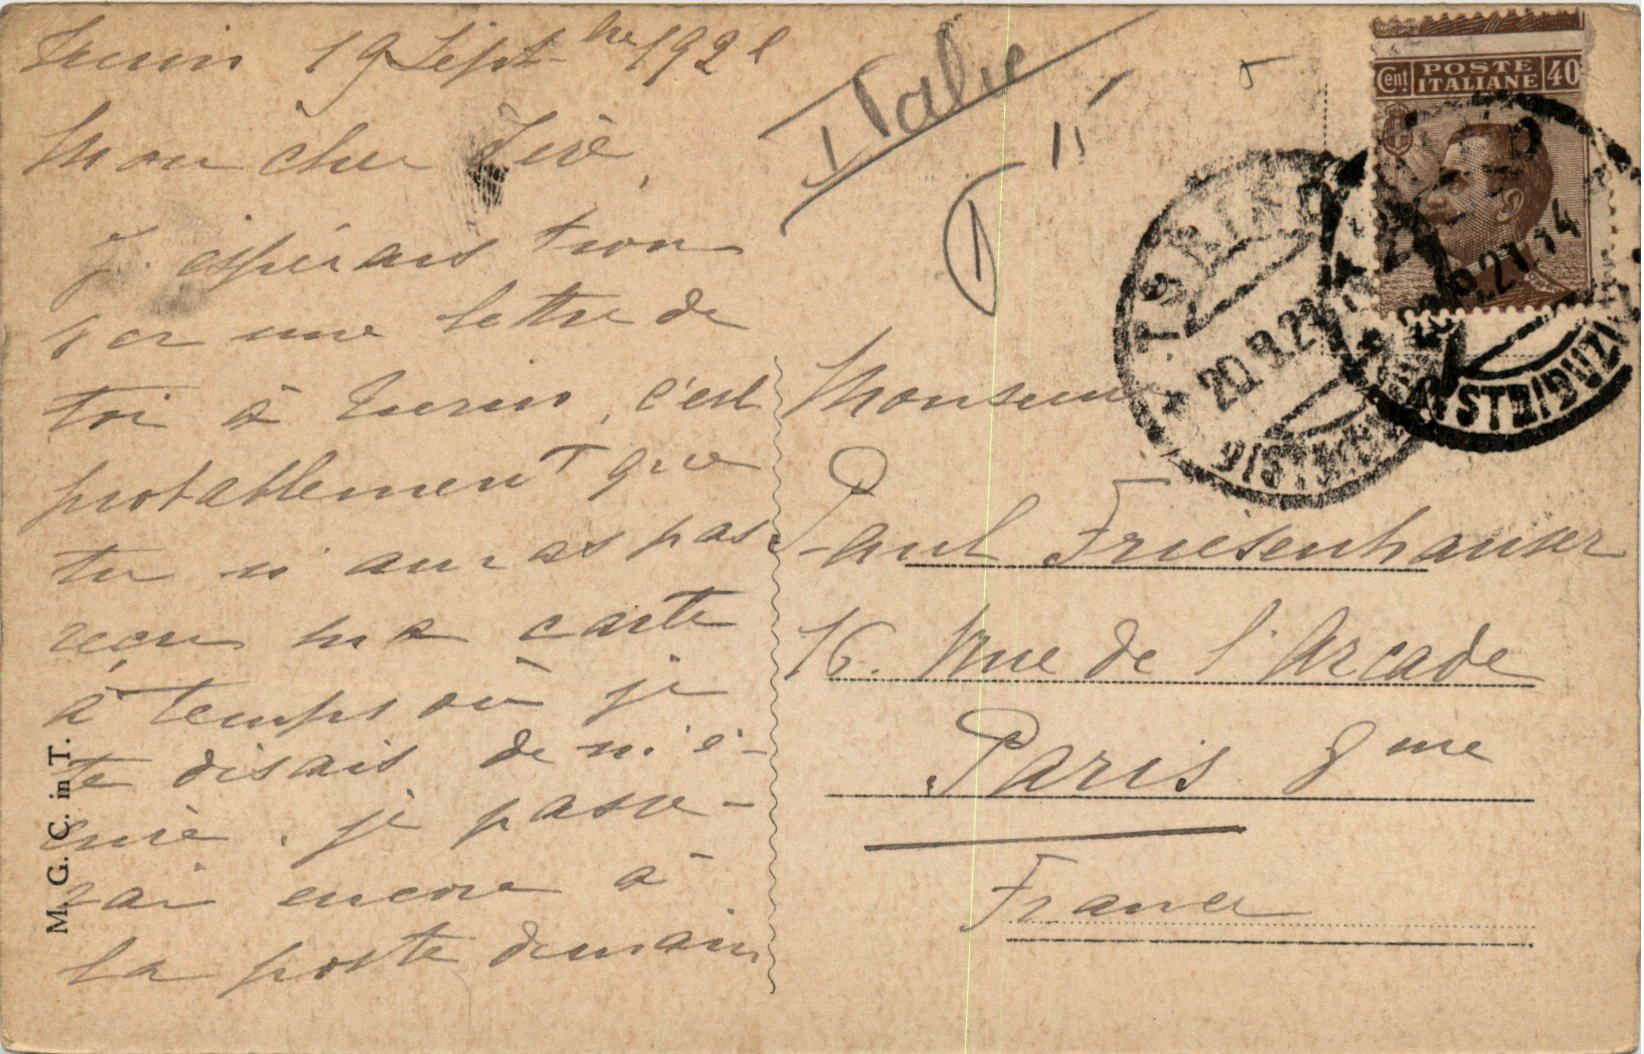 Turin 19 Septbre 1921
Italie
Mon cher
J'espérais trou
ver une lettre de
toi à Turin, c'est
probablement que
tu n'auras pas
reçu ma carte
à temps où je
te disais de m'é-
crire. je passe-
rai encore à
la poste demain
M. G. C. in T.
1
Cent POSTE ITALIANE 40
TORINO
20.9.21
DISTRIBUZI
Monsieur
Paul Friesenhauser
16. Rue de l'Arcade
Paris 8me
France